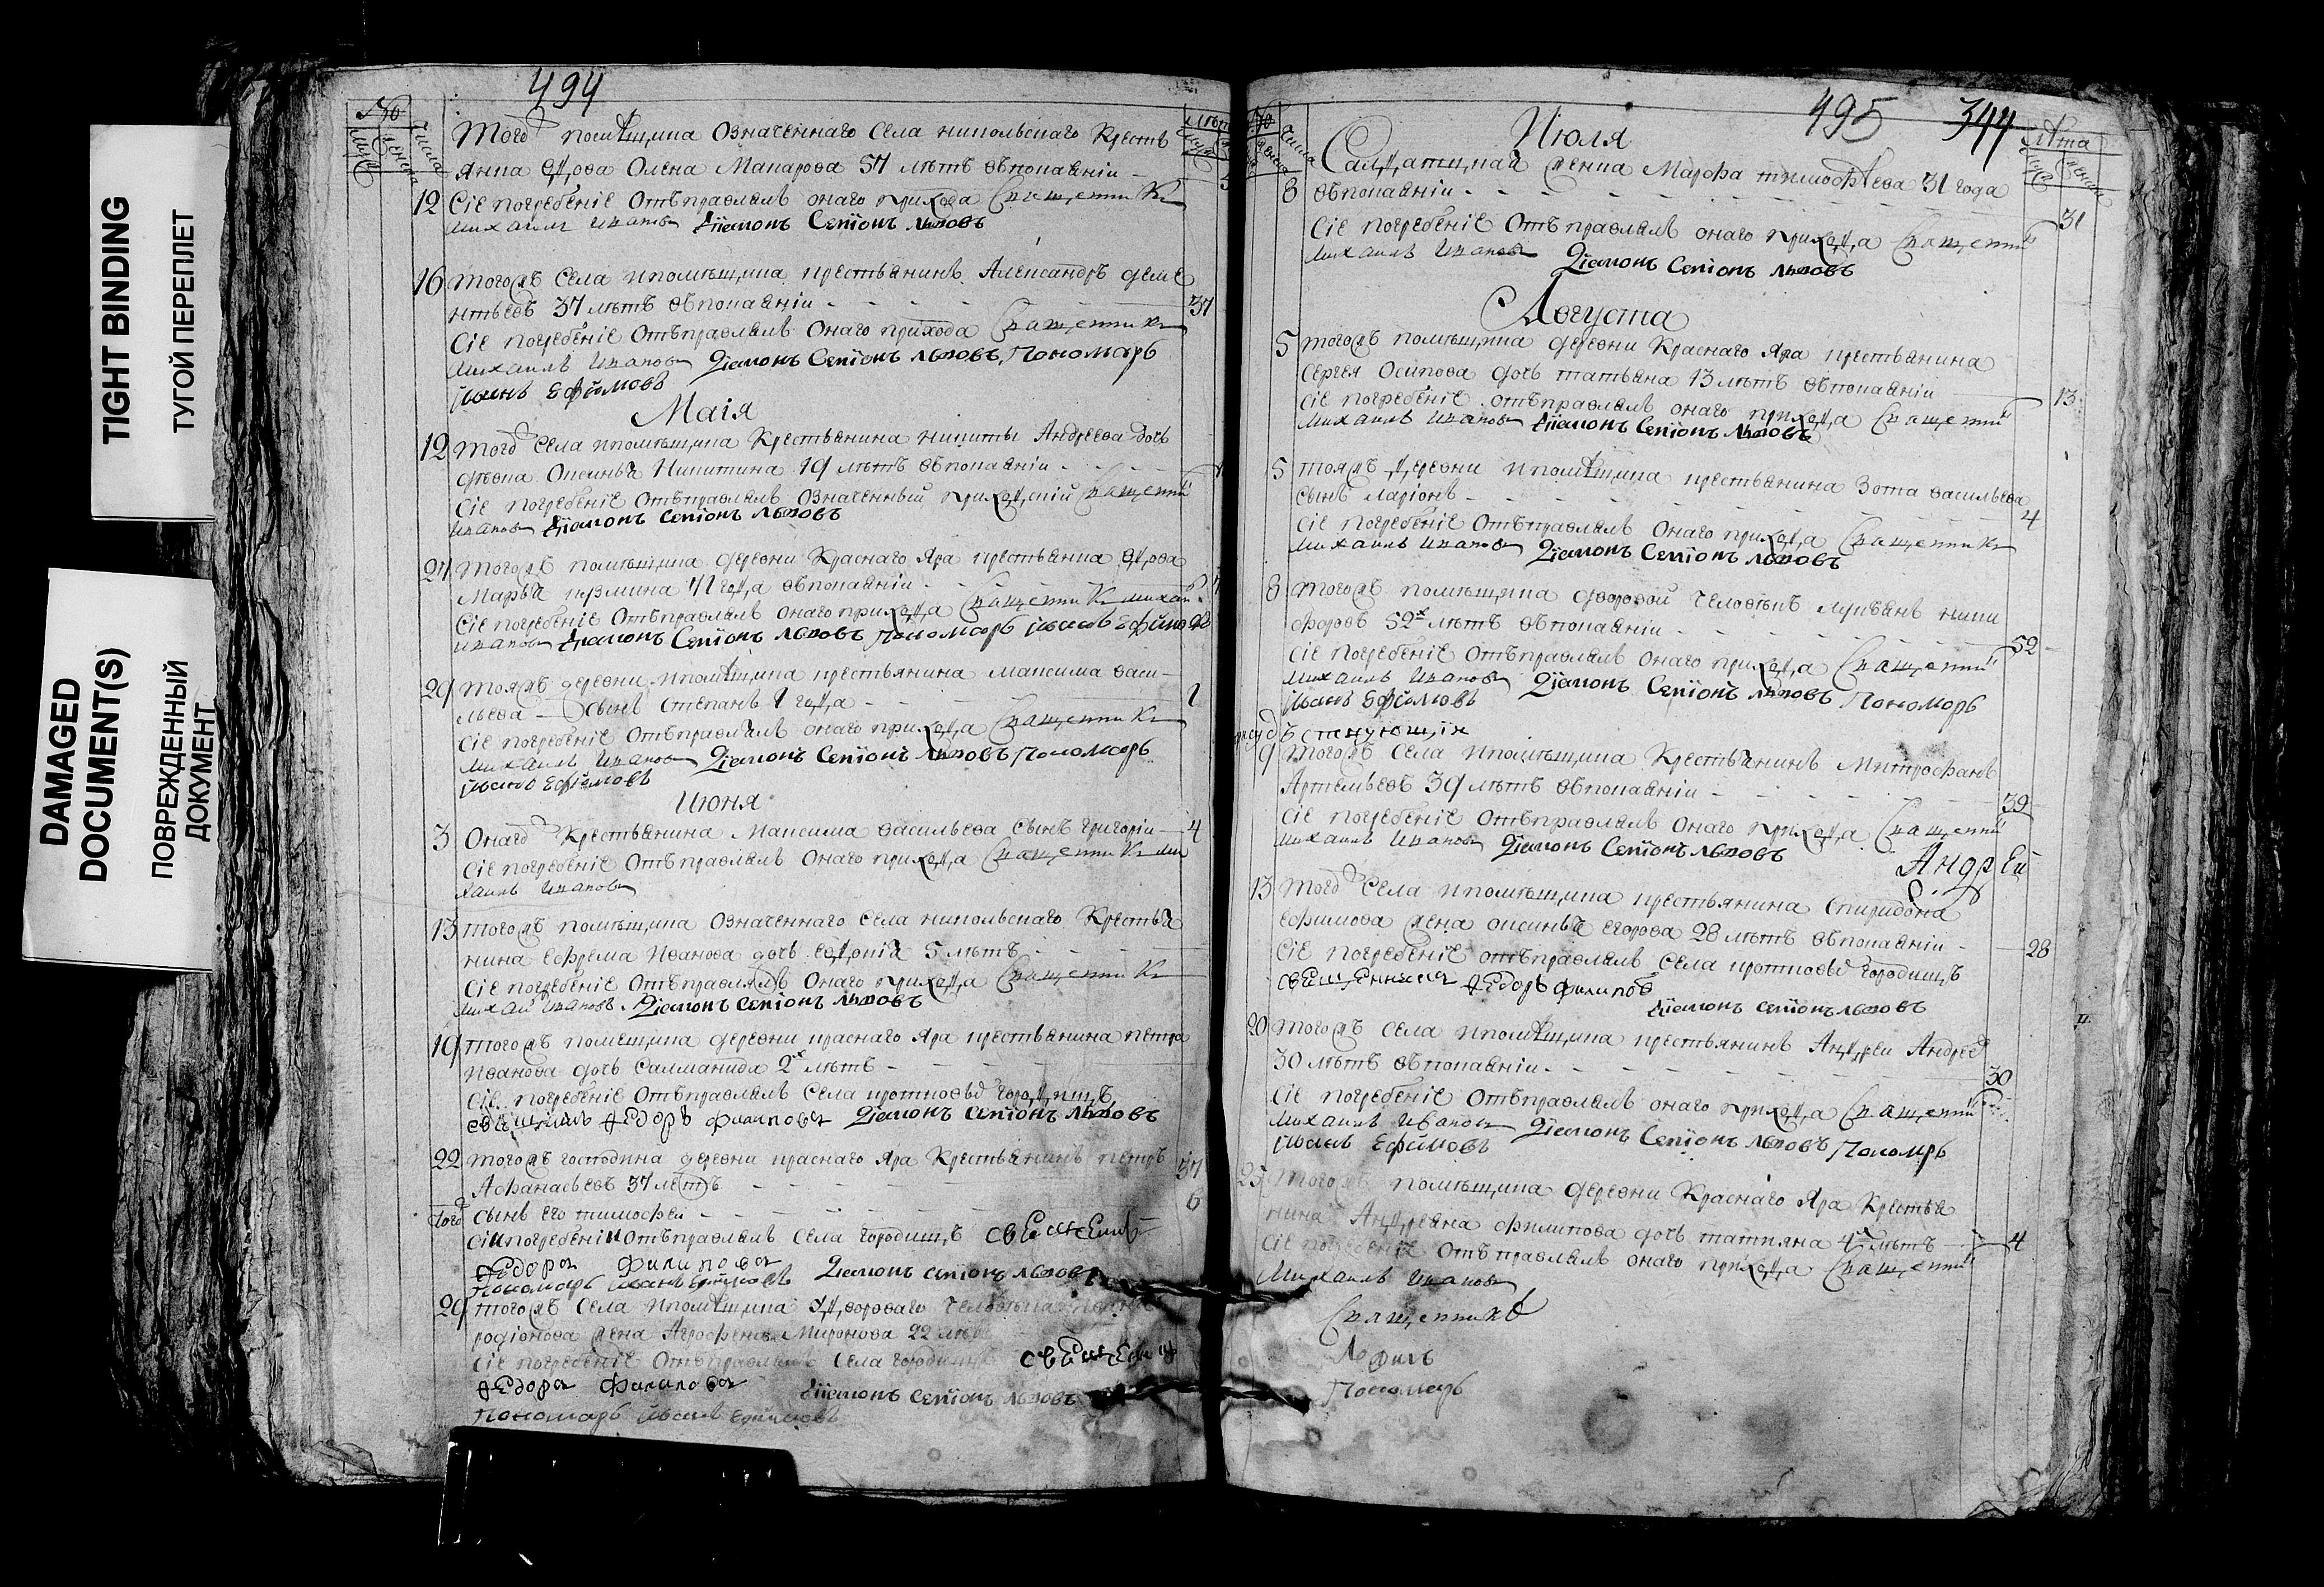 TIGHT BINDING
ТУГОЙ ПЕРЕПЛЕТ
DAMAGED
DOCUMENT(S)
ПОВРЕЖДЕННЫЙ
ДОКУМЕНТ
494
Того помѣщика означеннаго села никольскаго Кресть
янка вдова Олена Макарова 57 лѣтъ въпокаянiи
12 Сiе погребенiе отъправлялъ онаго прихода Священникъ
михаилъ ивановъ Дiаконъ Семiонъ львовъ
16 тогожъ села ипомѣщика крестьянинъ Александръ деме
нтьевъ 37 лѣтъ въпокаянiи 37
Сiе погребенiе отъправлялъ онаго прихода Священникъ
михаилъ ивановъ Дiаконъ Семiонъ львовъ, Пономарь
Iванъ Ефимовъ
Маiя
12 Того села ипомѣщика Крестьянина никиты Андреева дочь
девка Оксинья Никитина 19 лѣтъ въпокаянiи
Сiе погребенiе отъправлялъ означенный приходскiй Священни
ивановъ Дiаконъ Семiонъ львовъ
27 Тогожъ помѣщика деревни Краснаго Яра крестьянка вдова
Марья кузмина 71 года въпокаянiи
Сiе погребенiе отъправлялъ онаго прихода Священникъ михаи
ивановъ Дiаконъ Семiонъ львовъ Пономарь Iванъ Ефимовъ
29 тояжъ деревни ипомѣщика крестьянина максима васи-
льева сынъ степанъ 1 года 1
Сiе погребенiе отъправлялъ онаго прихода Священникъ
михаилъ ивановъ Дiаконъ Семiонъ львовъ Пономарь
Iванъ Ефимовъ
Июня
3 Онаго Крестьянина Максима васильева сынъ григорiи 4
Сiе погребенiе отъправлялъ онаго прихода Священникъ ми
хаилъ ивановъ
13 тогожъ помѣщика означеннаго села никольскаго Крестья
нина ефрема иванова дочь евдокiя 5 лѣтъ
Сiе погребенiе отъправлялъ онаго прихода Священникъ
михаи ивановъ. Дiаконъ Семiонъ львовъ
19 тогожъ помещика деревни краснаго Яра крестьянина петра
иванова дочь Салманида 2х лѣтъ
Сiе погребенiе отъправлялъ села городищъ
Федоръ филиповъ Дiаконъ Семiонъ львовъ
22 тогожъ господина деревни краснаго Яра Крестьянинъ петръ 37
Афанасьевъ 37 летъ
сынъ его тимофеи 6
Сiи погребенiи отъправлялъ села городищъ
Федоръ Филиповъ
Пономарь Iванъ Ефимовъ Дiаконъ Семiонъ львовъ
29 тогожъ села ипомѣщика дворового
родiонова жена Агрофена Миронова 22
Сiе погребенiе отъправлялъ села
Федоръ Филиповъ Дiаконъ Семiонъ львовъ
Пономарь Iванъ Ефимовъ
495 344
Июля
8 Салдатцкая женка Марфа тимофѣева 31 года
въпокаянiи 31
Сiе погребенiе отъправлялъ онаго прихода Священни
михаилъ ивановъ Дiаконъ Семiонъ львовъ
Августа
5 тогожъ помѣщика деревни Краснаго Яра крестьянина
Сергея Осипова дочь татьяна 13 лѣтъ въпокаянiи 13
Сiе погребенiе отъправлялъ онаго прихода Священни
михаилъ ивановъ Дiаконъ Семiонъ львовъ
5 тояжъ деревни ипомѣщика крестьянина Зота васильева
сынъ ларiонъ 4
Сiе погребенiе отъправлялъ онаго прихода Священникъ
михаилъ ивановъ Дiаконъ Семiонъ львовъ
8 тогожъ помѣщика дворовой человѣкъ лукьянъ ники
форовъ 52х лѣтъ въпокаянiи 52
Сiе погребенiе отъправлялъ онаго прихода Священни
михаилъ ивановъ Дiаконъ Семiонъ львовъ Пономарь
Iванъ Ефимовъ
9 тогожъ села ипомѣщика Крестьянинъ Митрофанъ
Артемьевъ 39 лѣтъ въпокаянiи 39
Сiе погребенiе отъправлялъ онаго прихода Священни
михаилъ ивановъ Дiаконъ Семiонъ львовъ
Андрей
13 того села ипомѣщика крестьянина Спиридона
ефимова жена оксинья егорова 28 лѣтъ въпокаянiи 28
Сiе погребенiе отъправлялъ села городищъ
Федоръ филиповъ
Дiаконъ семiонъ львовъ
20 тогожъ села ипомѣщика крестьянинъ Андреи Андреев
30 лѣтъ въпокаянiи 30
Сiе погребенiе отъправлялъ онаго прихода Священни
михаилъ ивановъ Дiаконъ Семiонъ львовъ, Пономарь
Iванъ Ефимовъ
25 тогожъ помѣщика деревни Краснаго Яра Крестья
нина Андреяна филипова дочь татияна 4х лѣтъ 4
Сiе погребенiе отъправлялъ онаго прихода Священни
Михаилъ ивановъ
Священникъ
Пономарь